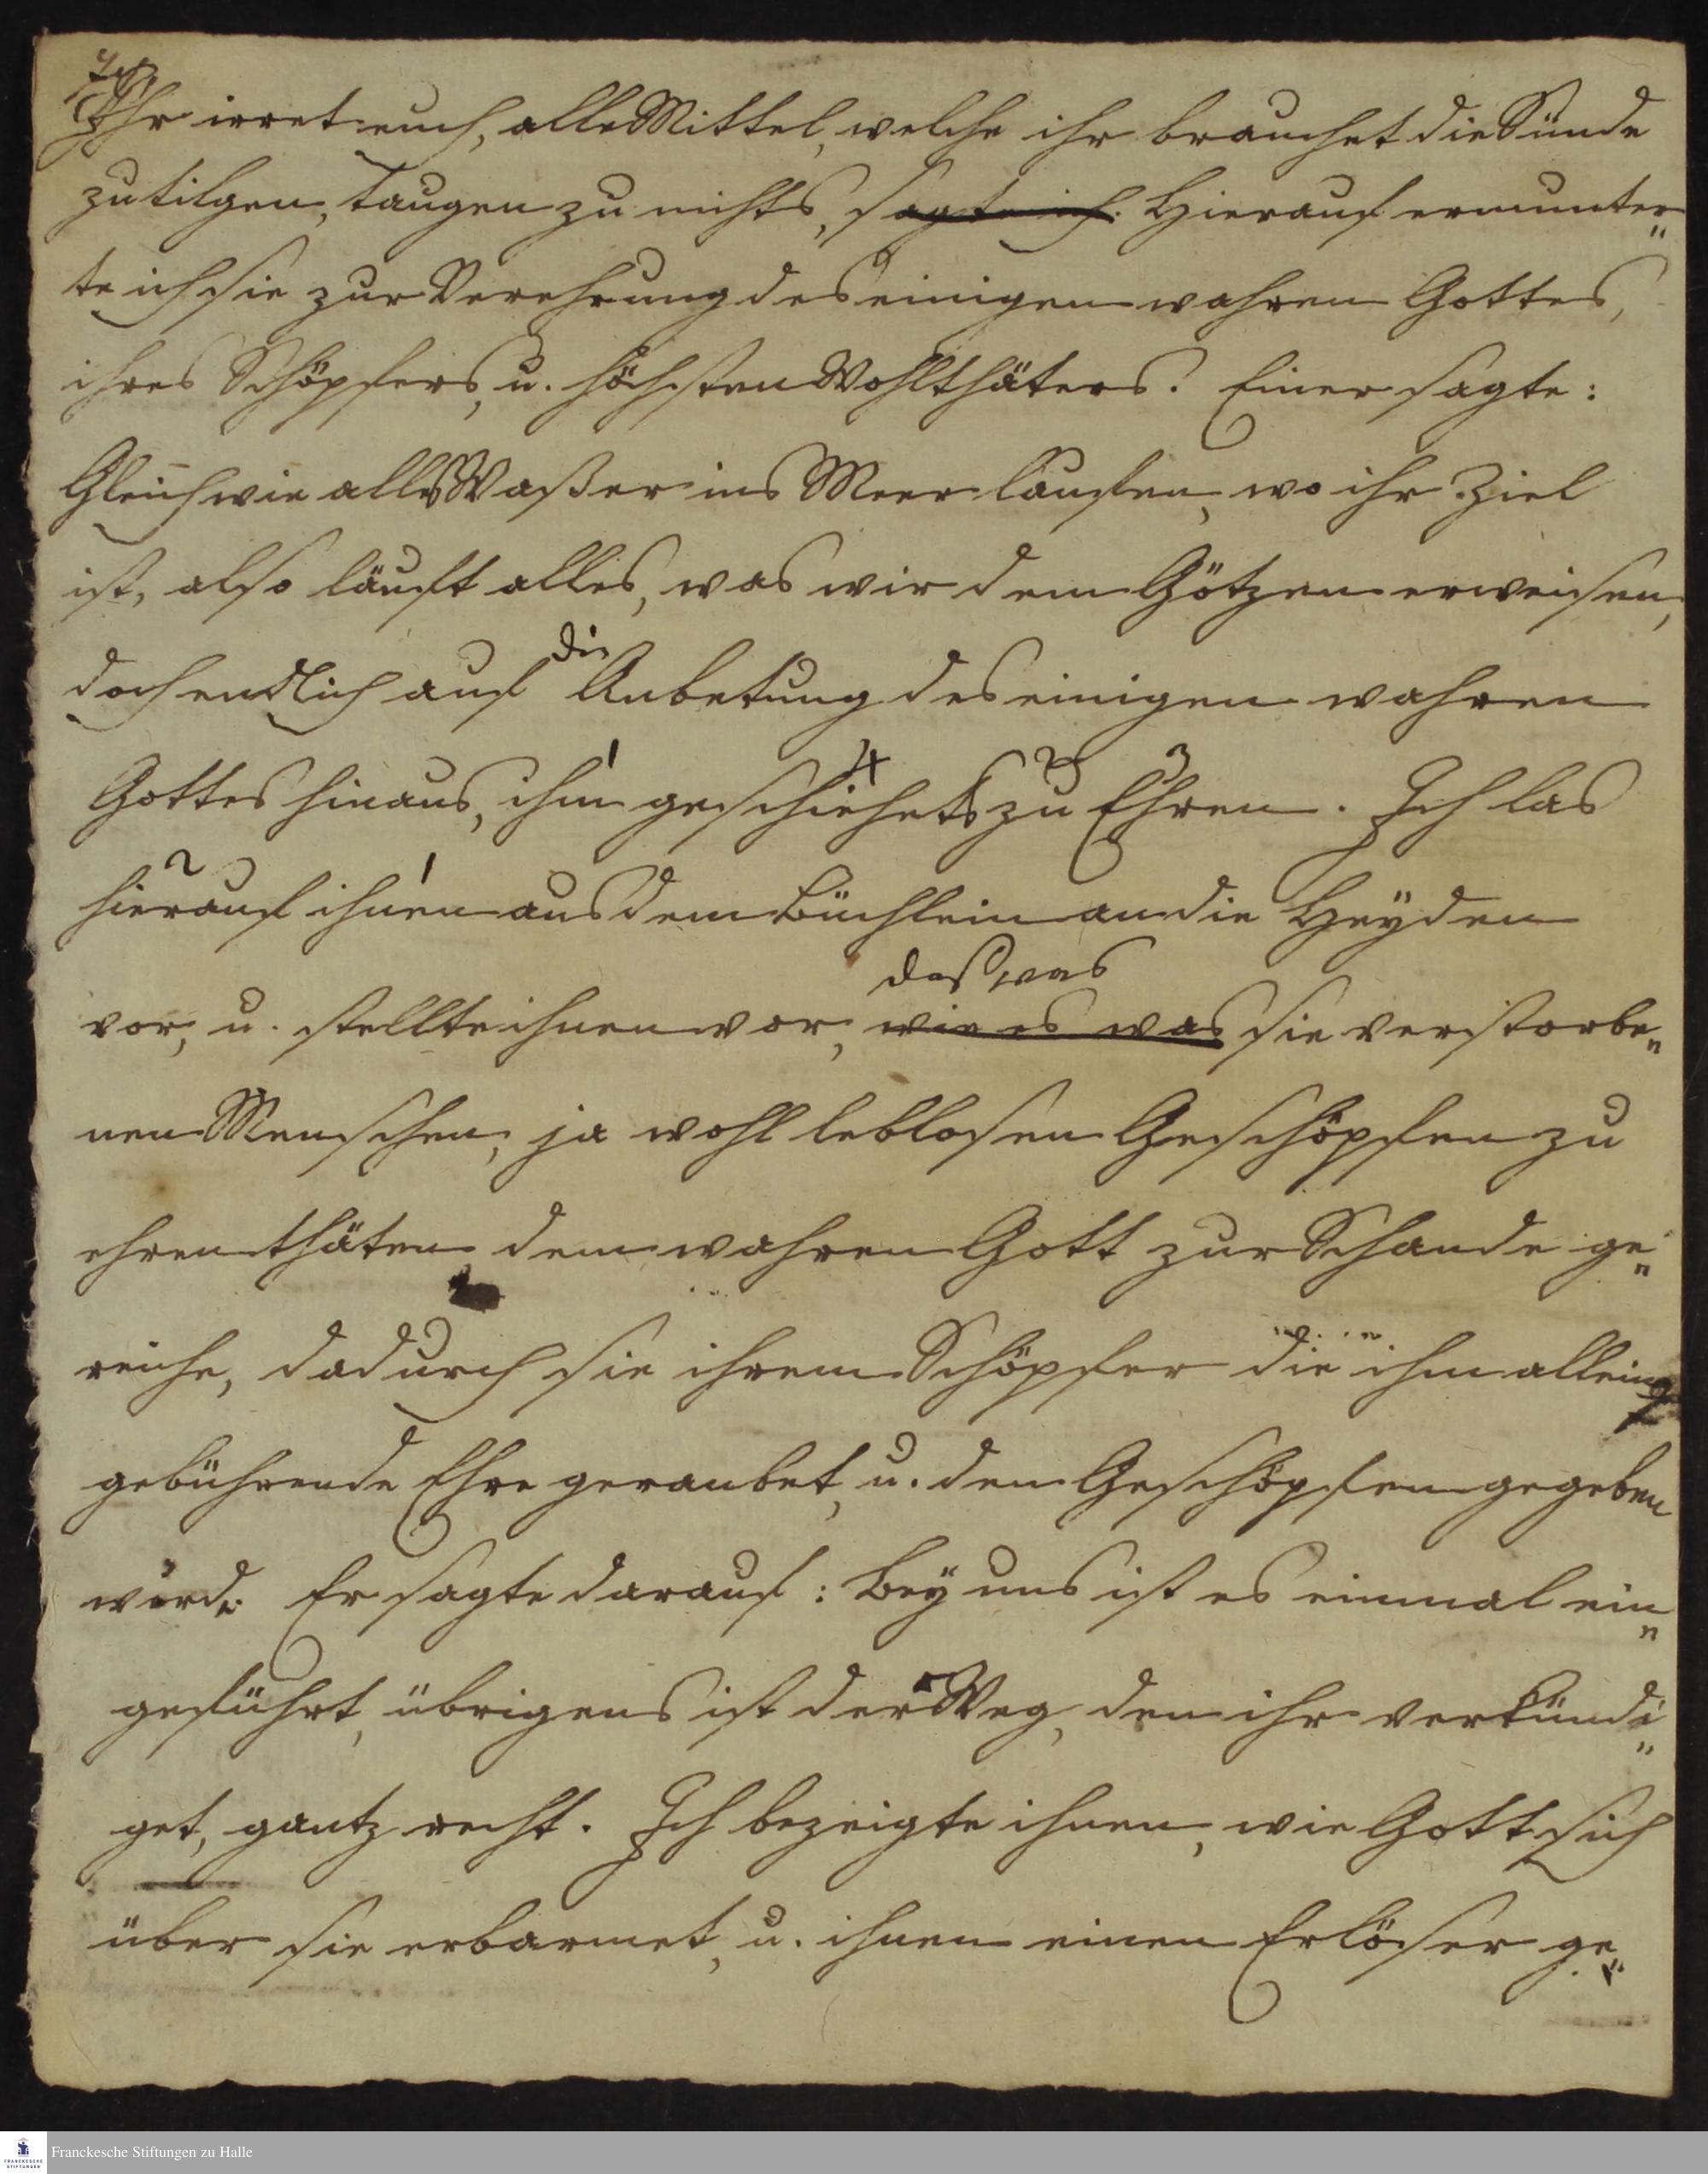 Ihr irret euch, alle Mittel, welche ihr brauchet die Sünde
zu tilgen, taugen zu nichts, sagte ich. Hierauf ermunter„
te ich sie zur Verehrung des einigen wahren Gottes,
ihres Schöpfers, u. höchsten Wohlthäters. Einer sagte:
Gleich wie alle Waßer ins Meer lauffen, wo ihr Ziel
ist, also läuft alles, was wir dem Götzen erweisen,
die
doch endlich auf Anbetung des einigen wahren
1 4 2 3
Gottes hinaus, ihm geschiehets zu Ehren. Ich las
2 1
hierauf ihnen aus dem Büchlein an die Heyden
daß was
vor, u. stellte ihnen vor, wie es was sie verstorbe„
nen Menschen, ja wohl leblosen Geschöpfen zu
ehren thäten, dem wahren Gott zur Schande ge„
reiche, dadurch sie ihrem Schöpfer die ihm allein
gebührende Ehre geraubet, u. den Geschöpfen gegeben
würde. Er sagte darauf: Bey uns ist es einmal ein„
geführt, übrigens ist der Weg, den ihr verkündi„
get, gantz recht. Ich bezeigte ihnen, wie Gott sich
über sie erbarmet, u. ihnen einen Erlöser ge„
Franckesche Stiftungen zu Halle